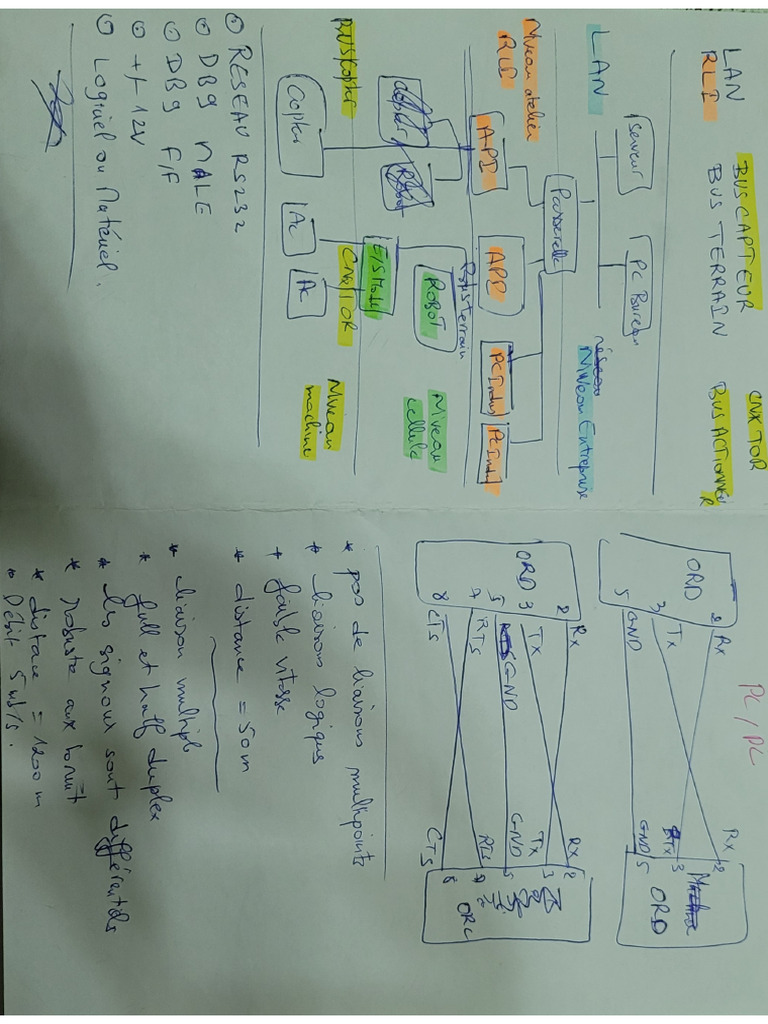 LAN
RLI
BUS CAPTEUR
BUS TERRAIN
CNXTOR
BUS ACTIONNEUR
LAN
Serveur
PC Bureau
réseau
Niveau Entreprise
Passerelle
Niveau atelier
RLI
API
API
PC Indus
PC Ind
Bus terrain
Robot
ROBOT
Niveau
cellule
E/S
CNXTOR
Capter
Ac
Ac
Niveau
machine
RESEAU RS232
DB9 MALE
DB9 F/F
+/- 12V
Logiciel ou Matériel.
PC/PC
ORD
2 Rx
3 Tx
5 GND
Rx 2
Tx 3
GND 5
ORD
ORD
2 Rx
3 Tx
5 GND
7 RTS
8 CTS
Rx 2
Tx 3
GND 5
RTS 7
CTS 8
ORD
* pas de liaisons multipoints
* liaisons logiques
+ faible vitesse
* distance = 50m
* liaison multiple
* full et half duplex
* les signaux sont différentiels
* robuste aux bruit
* distance = 1200 m
* Débit 5 mb/s.